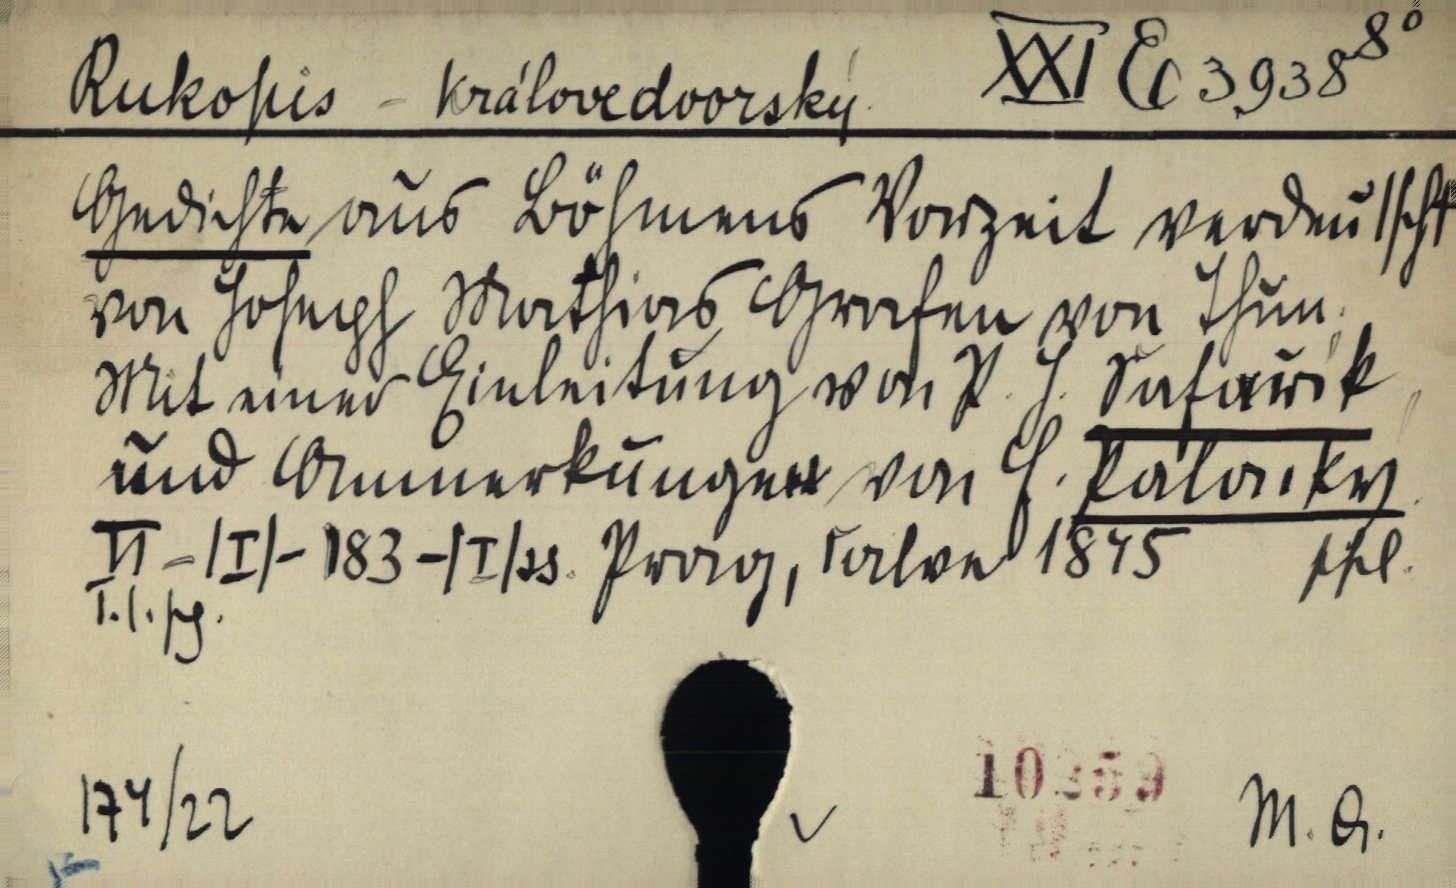 Rukopis - královedvorský. XXI Ec 3938 8°
Gedichte aus Böhmens Vorzeit verdeutscht
von Joseph Mathias Grafen von Thun.
Mit einer Einleitung von P. J. Šafařík
und Anmerkungen von F. Palacky.
VI -/I/- 183 -/I/ss. Prag, Calve 1845
T.l.pg.
174/22
10259
M. G.